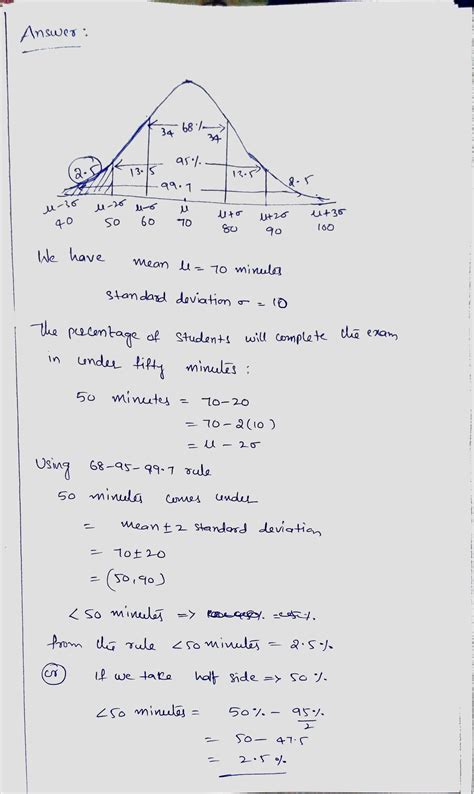 Answer:
34 68% 34
2.5 13.5 95% 13.5 2.5
99.7
μ-3σ μ-2σ μ-σ μ μ+σ μ+2σ μ+3σ
40 50 60 70 80 90 100
We have mean μ = 70 minutes
standard deviation σ = 10
The percentage of students will complete the exam
in under fifty minutes:
50 minutes = 70-20
= 70-2(10)
= μ-2σ
Using 68-95-99.7 rule
50 minutes comes under
= mean ± 2 standard deviation
= 70±20
= (50,90)
<50 minutes =>
from the rule <50 minutes = 2.5%
(or) If we take half side => 50%
<50 minutes = 50% - 95%/2
= 50 - 47.5
= 2.5%